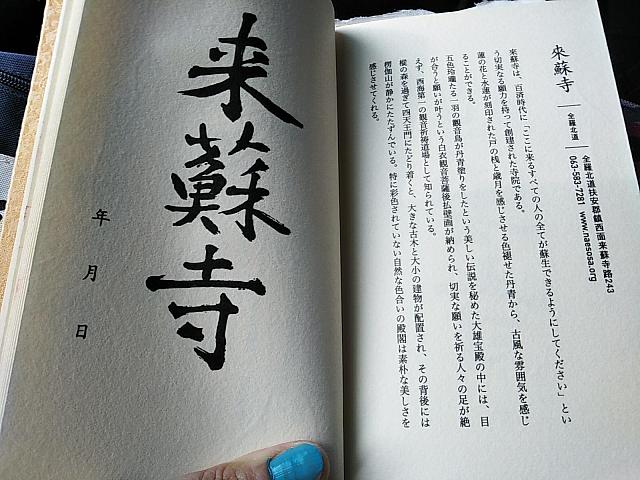 來蘇寺
全羅北道
全羅北道扶安郡鎮西面来蘇寺路243
063-583-7281 www.naesosa.org
来蘇寺は、百済時代に「ここに来るすべての人の全てが蘇生できるようにしてください」とい
う切実なる願力を持って創建された寺院である。
蓮の花と水蓮が刻印された戸の桟と歳月を感じさせる色褪せた丹青から、古風な雰囲気を感じ
ることができる。
五色玲瓏たる一羽の観音鳥が丹青塗りをしたという美しい伝説を秘めた大雄宝殿の中には、目
が合うと願いが叶うという白衣観音菩薩後払壁画が納められ、切実な願いを祈る人々の足が絶
えず、西海第一の観音祈祷道場として知られている。
樅の森を過ぎて四天王門にたどり着くと、大きな古木と大小の建物が配置され、その背後には
楞伽山が静かにたたずんでいる。特に彩色されていない自然な色合いの殿閣は素朴な美しさを
感じさせてくれる。
来蘇寺
年 月 日